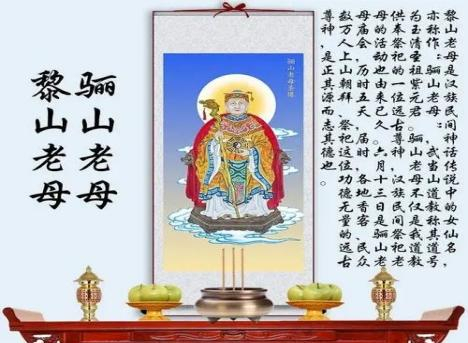 黎山老母:是汉族民间神话传说中的女仙名,
亦称作“骊山老母”,武当山道教称其道号
为玉清圣祖紫元君。骊山老母不仅是我道教
供奉祭祀的一位远古尊神,汉族民间祭祀老
母的活动也由来已久。六月十三日是骊山老
母庙会,历时五天。届时,各地香客、民众
数万人上山朝拜,祭祀这位功德无量的远古
尊神,是正其源而志其德也。
骊山老母圣像
骊山老母
黎山老母